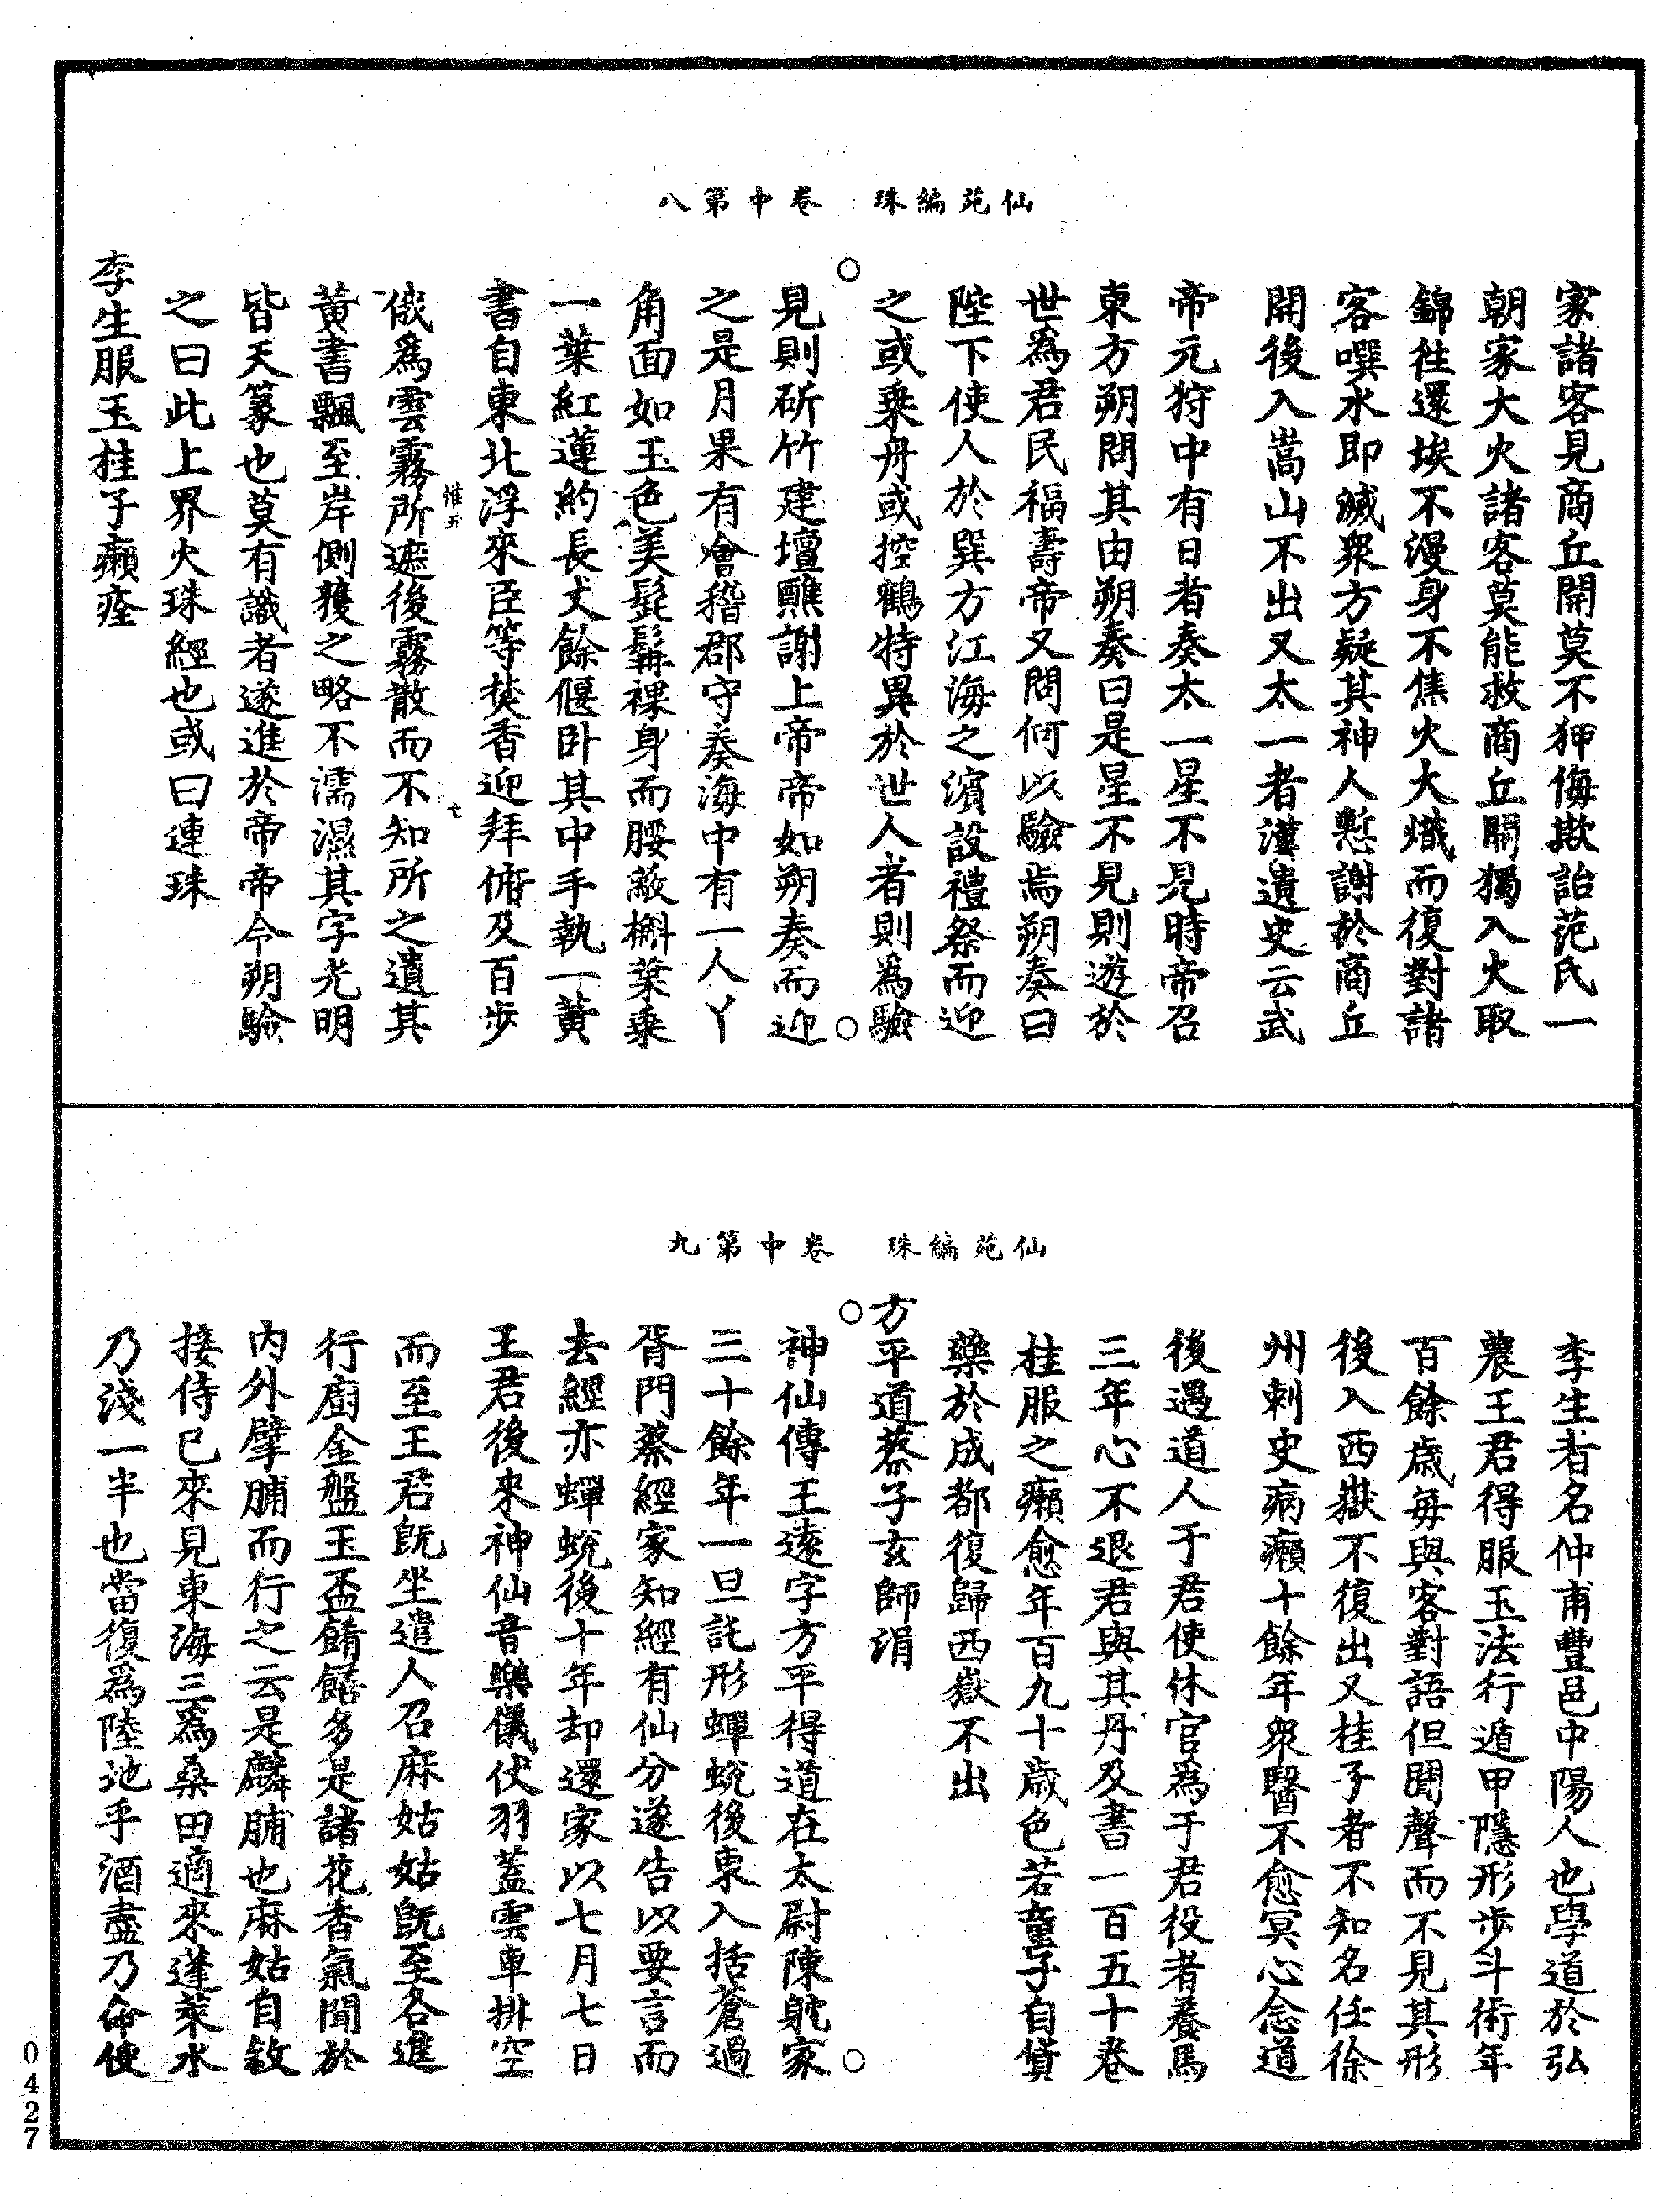 仙苑編珠　卷中第八
家諸客見商丘開莫不狎侮欺詒范氏一
朝家大火諸客莫能救商丘開獨入火取
錦往還埃不漫身不焦火大熾而復對諸
客噀水即滅衆方疑其神人慙謝於商丘
開後入嵩山不出又太一者漢遺史云武
帝元狩中有日者奏太一星不見時帝召
東方朔問其由朔奏曰是星不見則遊於
世為君民福壽帝又問何以驗焉朔奏曰
陛下使人於巽方江海之濱設禮祭而迎
之或乗舟或控鶴特異於世人者則爲驗
見則斫竹建壇醮謝上帝帝如朔奏而迎
之是月果有會稽郡守奏海中有一人丫
角面如玉色美髭髯裸身而腰蔽槲葉乗
一葉紅蓮約長丈餘偃卧其中手執一黃
書自東北浮來臣等焚香迎拜俯及百步
惟五　七
俄爲雲霧所遮後霧散而不知所之遺其
黃書飄至岸側獲之略不濡濕其字光明
皆天篆也莫有識者遂進於帝帝令朔驗
之曰此上界火珠經也或曰連珠
李生服玉桂子癩痊
仙苑編珠　卷中第九
李生者名仲甫豐邑中陽人也學道於弘
農王君得服玉法行遁甲隱形步斗術年
百餘歲毎與客對語但聞聲而不見其形
後入西嶽不復出又桂子者不知名任徐
州刺史病癩十餘年衆醫不愈冥心念道
後遇道人于君使休官為于君役者養馬
三年心不退君與其丹及書一百五十卷
桂服之癩愈年百九十歲色若童子自貨
藥於成都復歸西嶽不出
方平道蔡子玄師涓
神仙傳王遠字方平得道在太尉陳躭家
三十餘年一旦託形蟬蛻後東入括蒼過
胥門蔡經家知經有仙分遂告以要言而
去經亦蟬蛻後十年却還家以七月七日
王君後來神仙音樂儀仗羽蓋雲車排空
而至王君旣坐遣人召麻姑姑旣至各進
行廚金盤玉盃餚饍多是諸花香氣聞於
内外擘脯而行之云是麟脯也麻姑自敘
接侍已來見東海三爲桑田適來蓬萊水
乃淺一半也當復爲陸地乎酒盡乃命使
0427